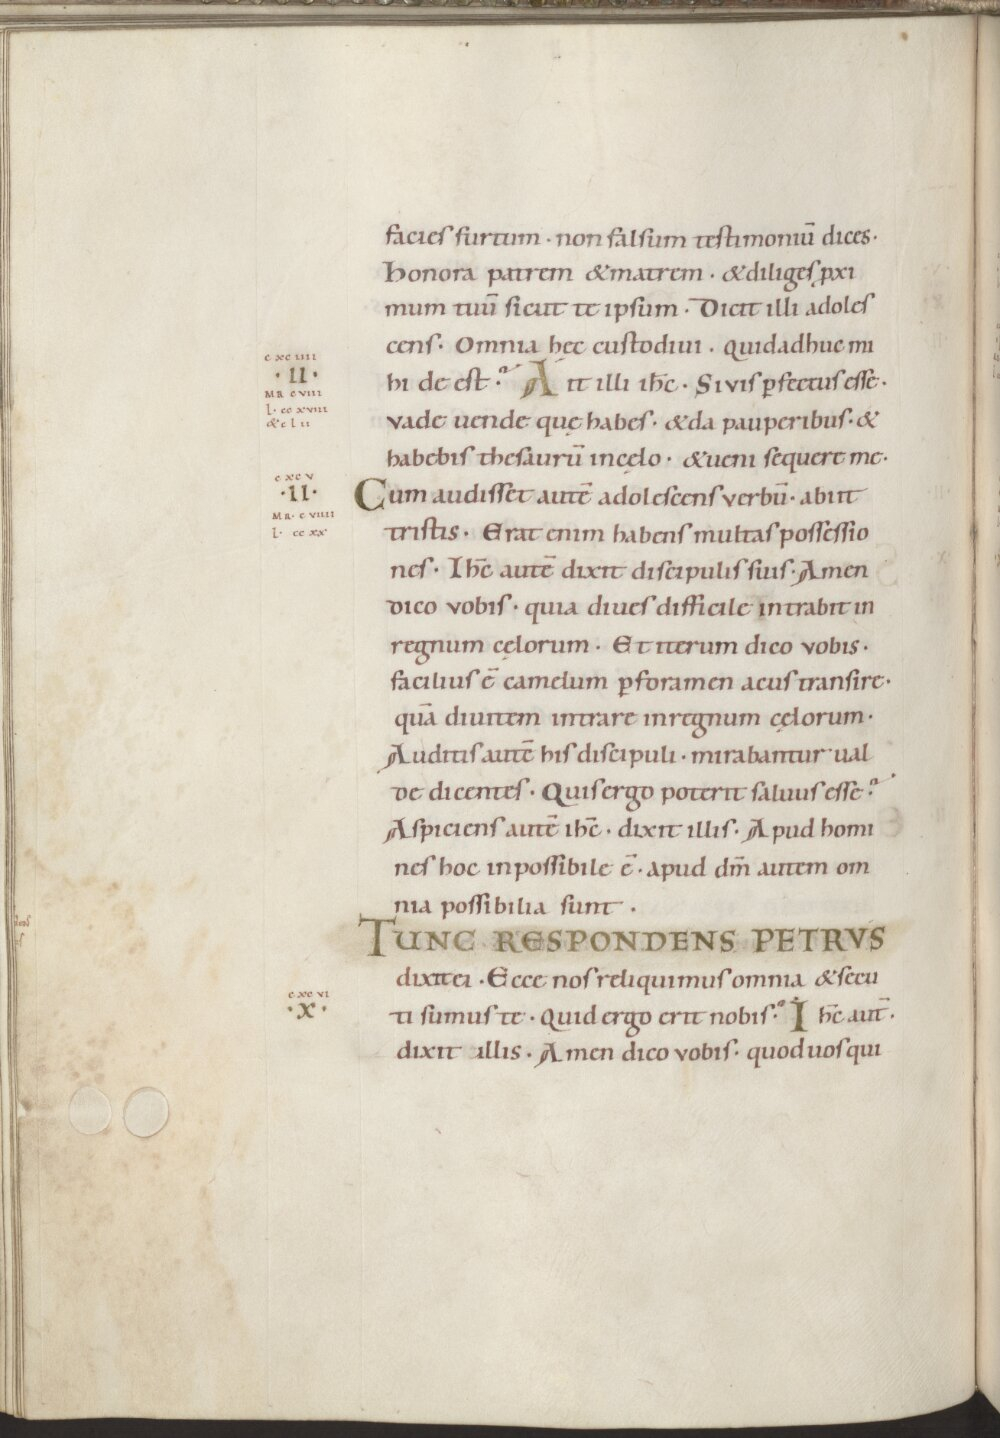 facies furtum · non falsum testimoniū dices ·
honora patrem & matrem · & diliges ꝓxi
mum tuū sicut te ipsum · Dicit illi adoles
cens · Omnia hęc custodiui · quid adhuc mi
cxciiii
· II ·
MR cviii
l · ccxviii
& clii
hi de est · Ait illi ihc̄ · Si vis ꝑfectus esse ·
vade uende quę habes · & da pauperibus · &
habebis thesaurū in cęlo · & ueni sequere me ·
cxcv
· II ·
MR · cviiii
l · ccxx
Cum audisset autē adolescens verbū · abiit
tristis · Erat enim habens multas possessio
nes · Ihc̄ autē dixit discipulis suis · Amen
dico vobis · quia diues difficile intrabit in
regnum cęlorum · Et iterum dico vobis ·
facilius ē camelum ꝑ foramen acus transire ·
quā diuitem intrare in regnum cęlorum ·
Auditis autē his discipuli · mirabantur ual
de dicentes · Quis ergo poterit saluus esse ·
Aspiciens autē ihc̄ · dixit illis · Apud homi
nes hoc inpossibile ē · apud dm̄ autem om
nia possibilia sunt ·
TUNC RESPONDENS PETRVS
dixit ei · Ecce nos reliquimus omnia & secu
cxcvi
· X ·
ti sumus te · quid ergo erit nobis · Ihc̄ aut̄ ·
dixit illis · Amen dico vobis · quod uos qui